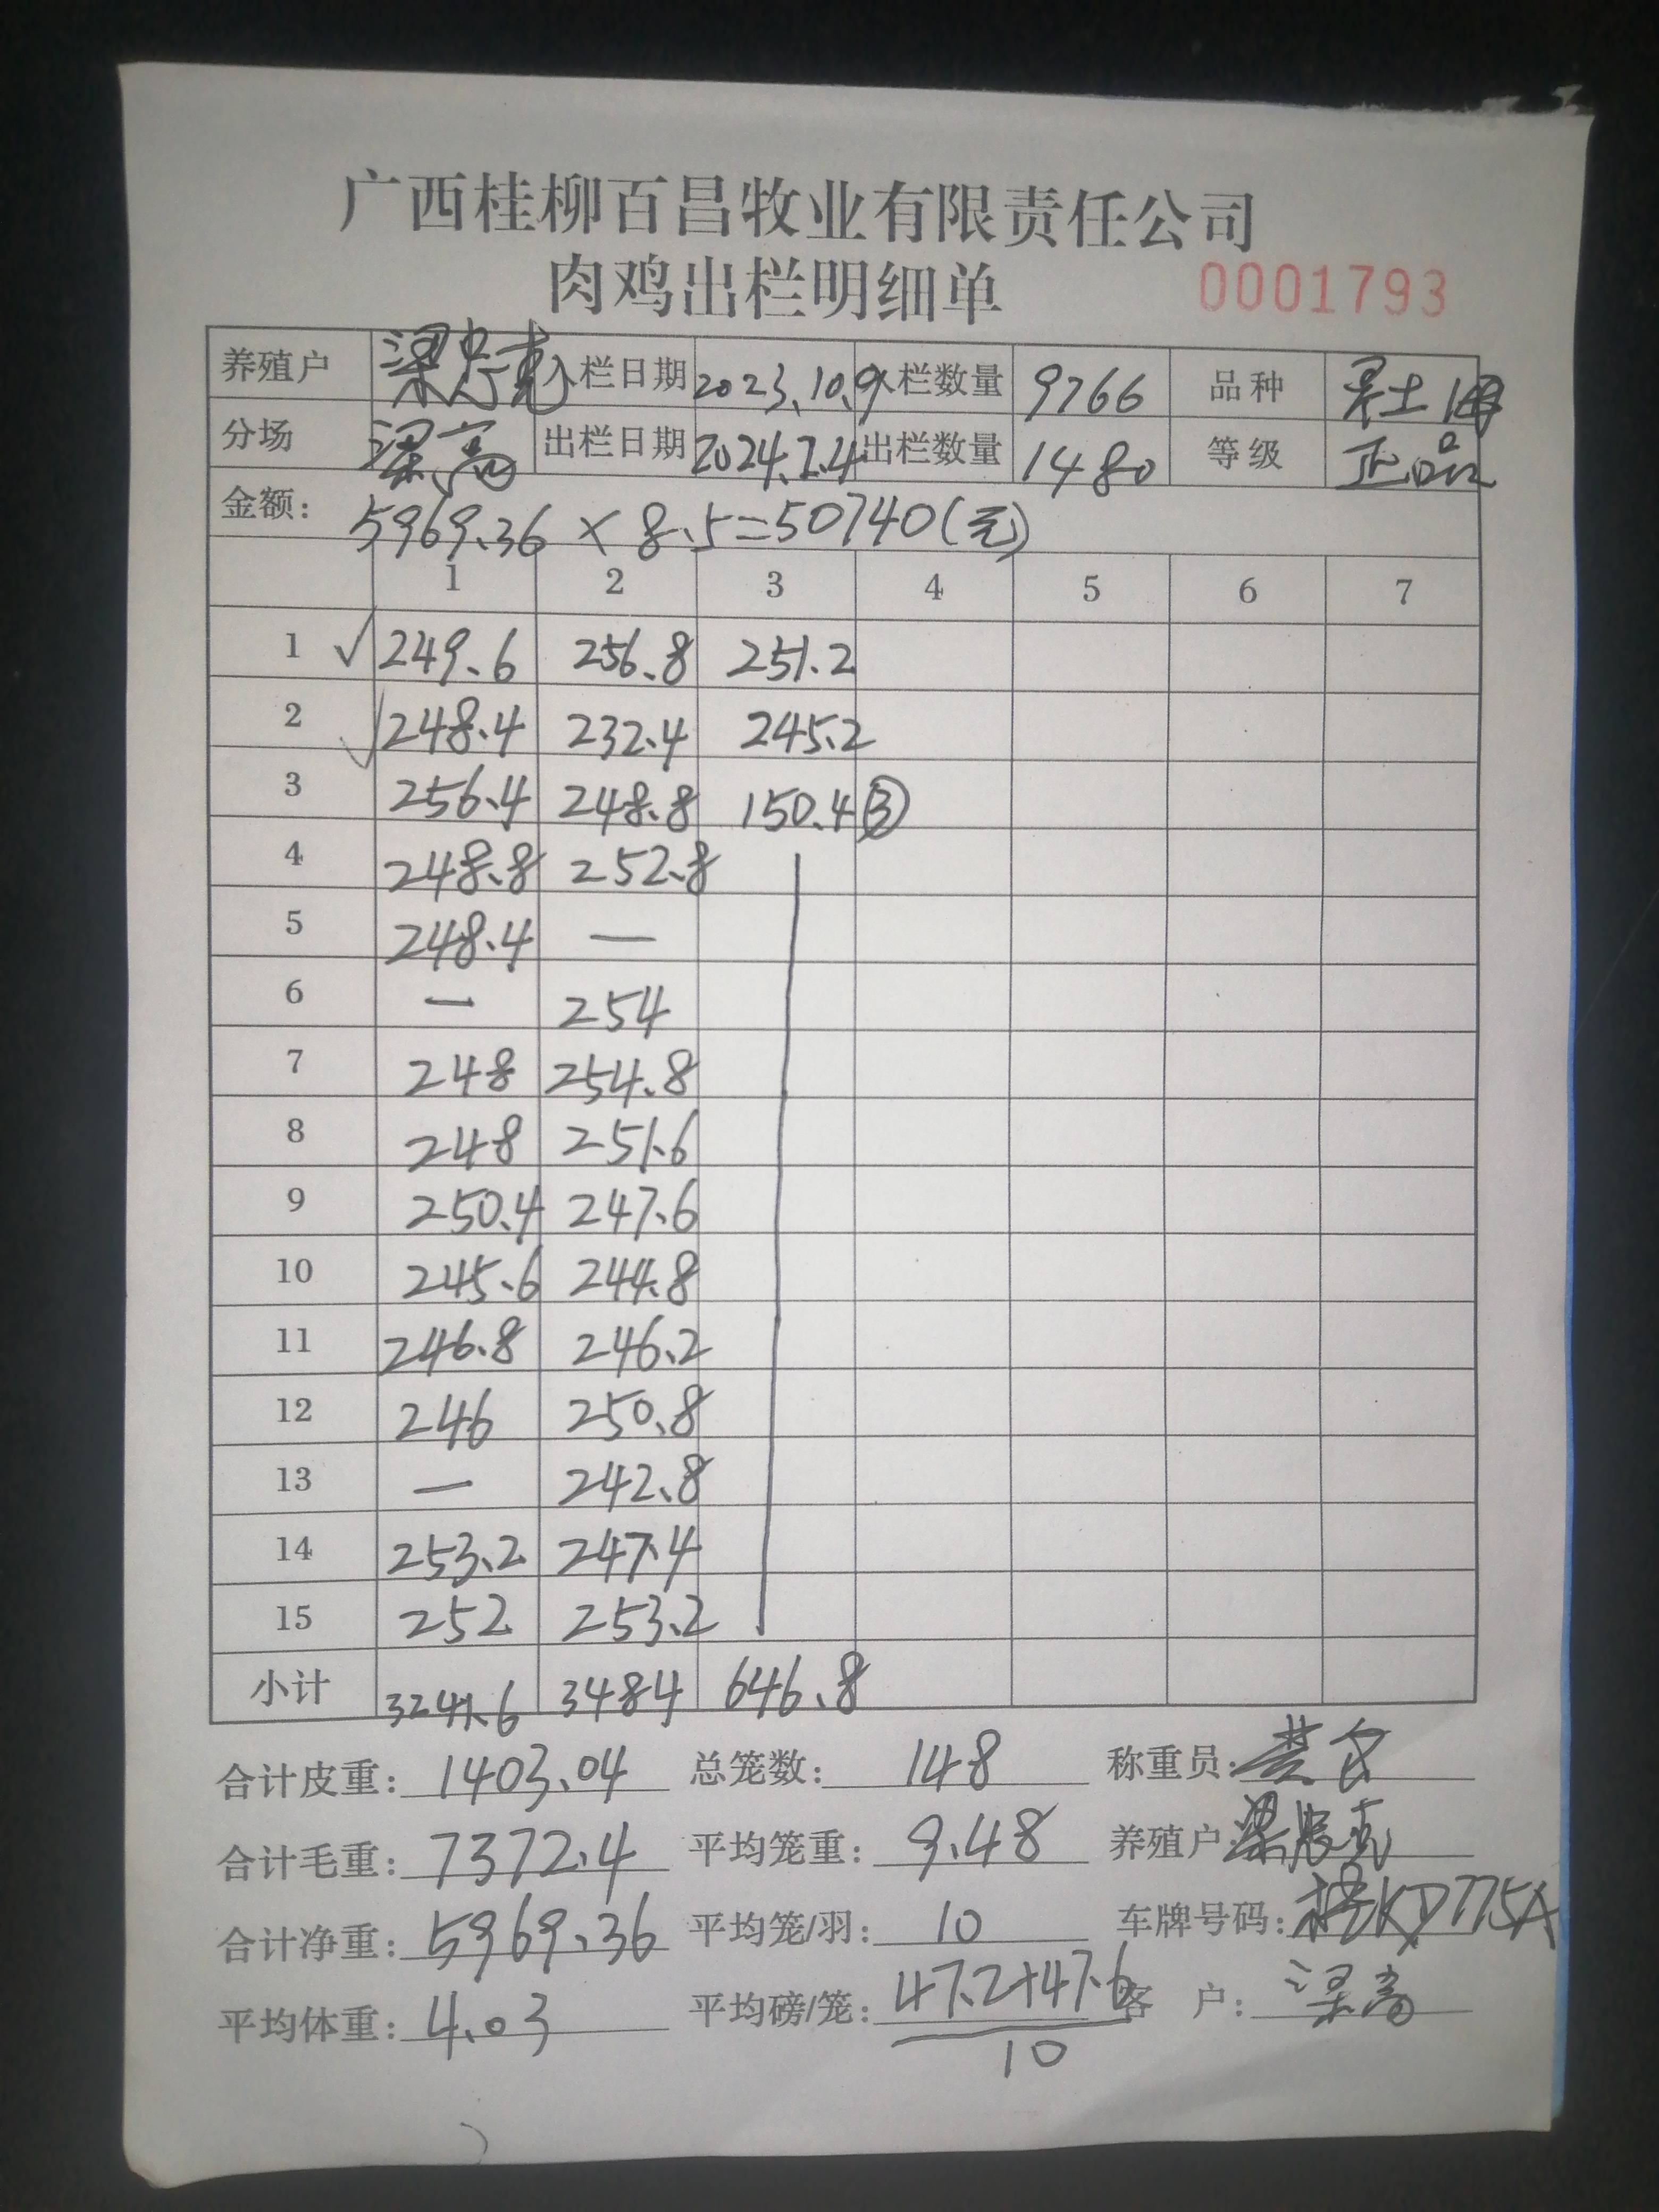 广西桂柳百昌牧业有限责任公司
肉鸡出栏明细单 0001793
养殖户 梁 入栏日期 2023.10.9 入栏数量 9766 品种 土
分场 梁高 出栏日期 2024.2.4 出栏数量 1480 等级 正品
金额: 5969.36 × 8.5=50740(元)
1 2 3 4 5 6 7
1 √ 249.6 256.8 251.2
2 √ 248.4 232.4 245.2
3 256.4 248.8 150.4 ③
4 248.8 252.8
5 248.4 —
6 — 254
7 248 254.8
8 248 251.6
9 250.4 247.6
10 245.6 244.8
11 246.8 246.2
12 246 250.8
13 — 242.8
14 253.2 247.4
15 252 253.2
小计 3241.6 3484 646.8
合计皮重: 1403.04 总笼数: 148 称重员:
合计毛重: 7372.4 平均笼重: 9.48 养殖户: 梁
合计净重: 5969.36 平均笼/羽: 10 车牌号码: 桂KD775A
平均体重: 4.03 平均磅/笼: 47.2+47.6 客 户: 梁高
10